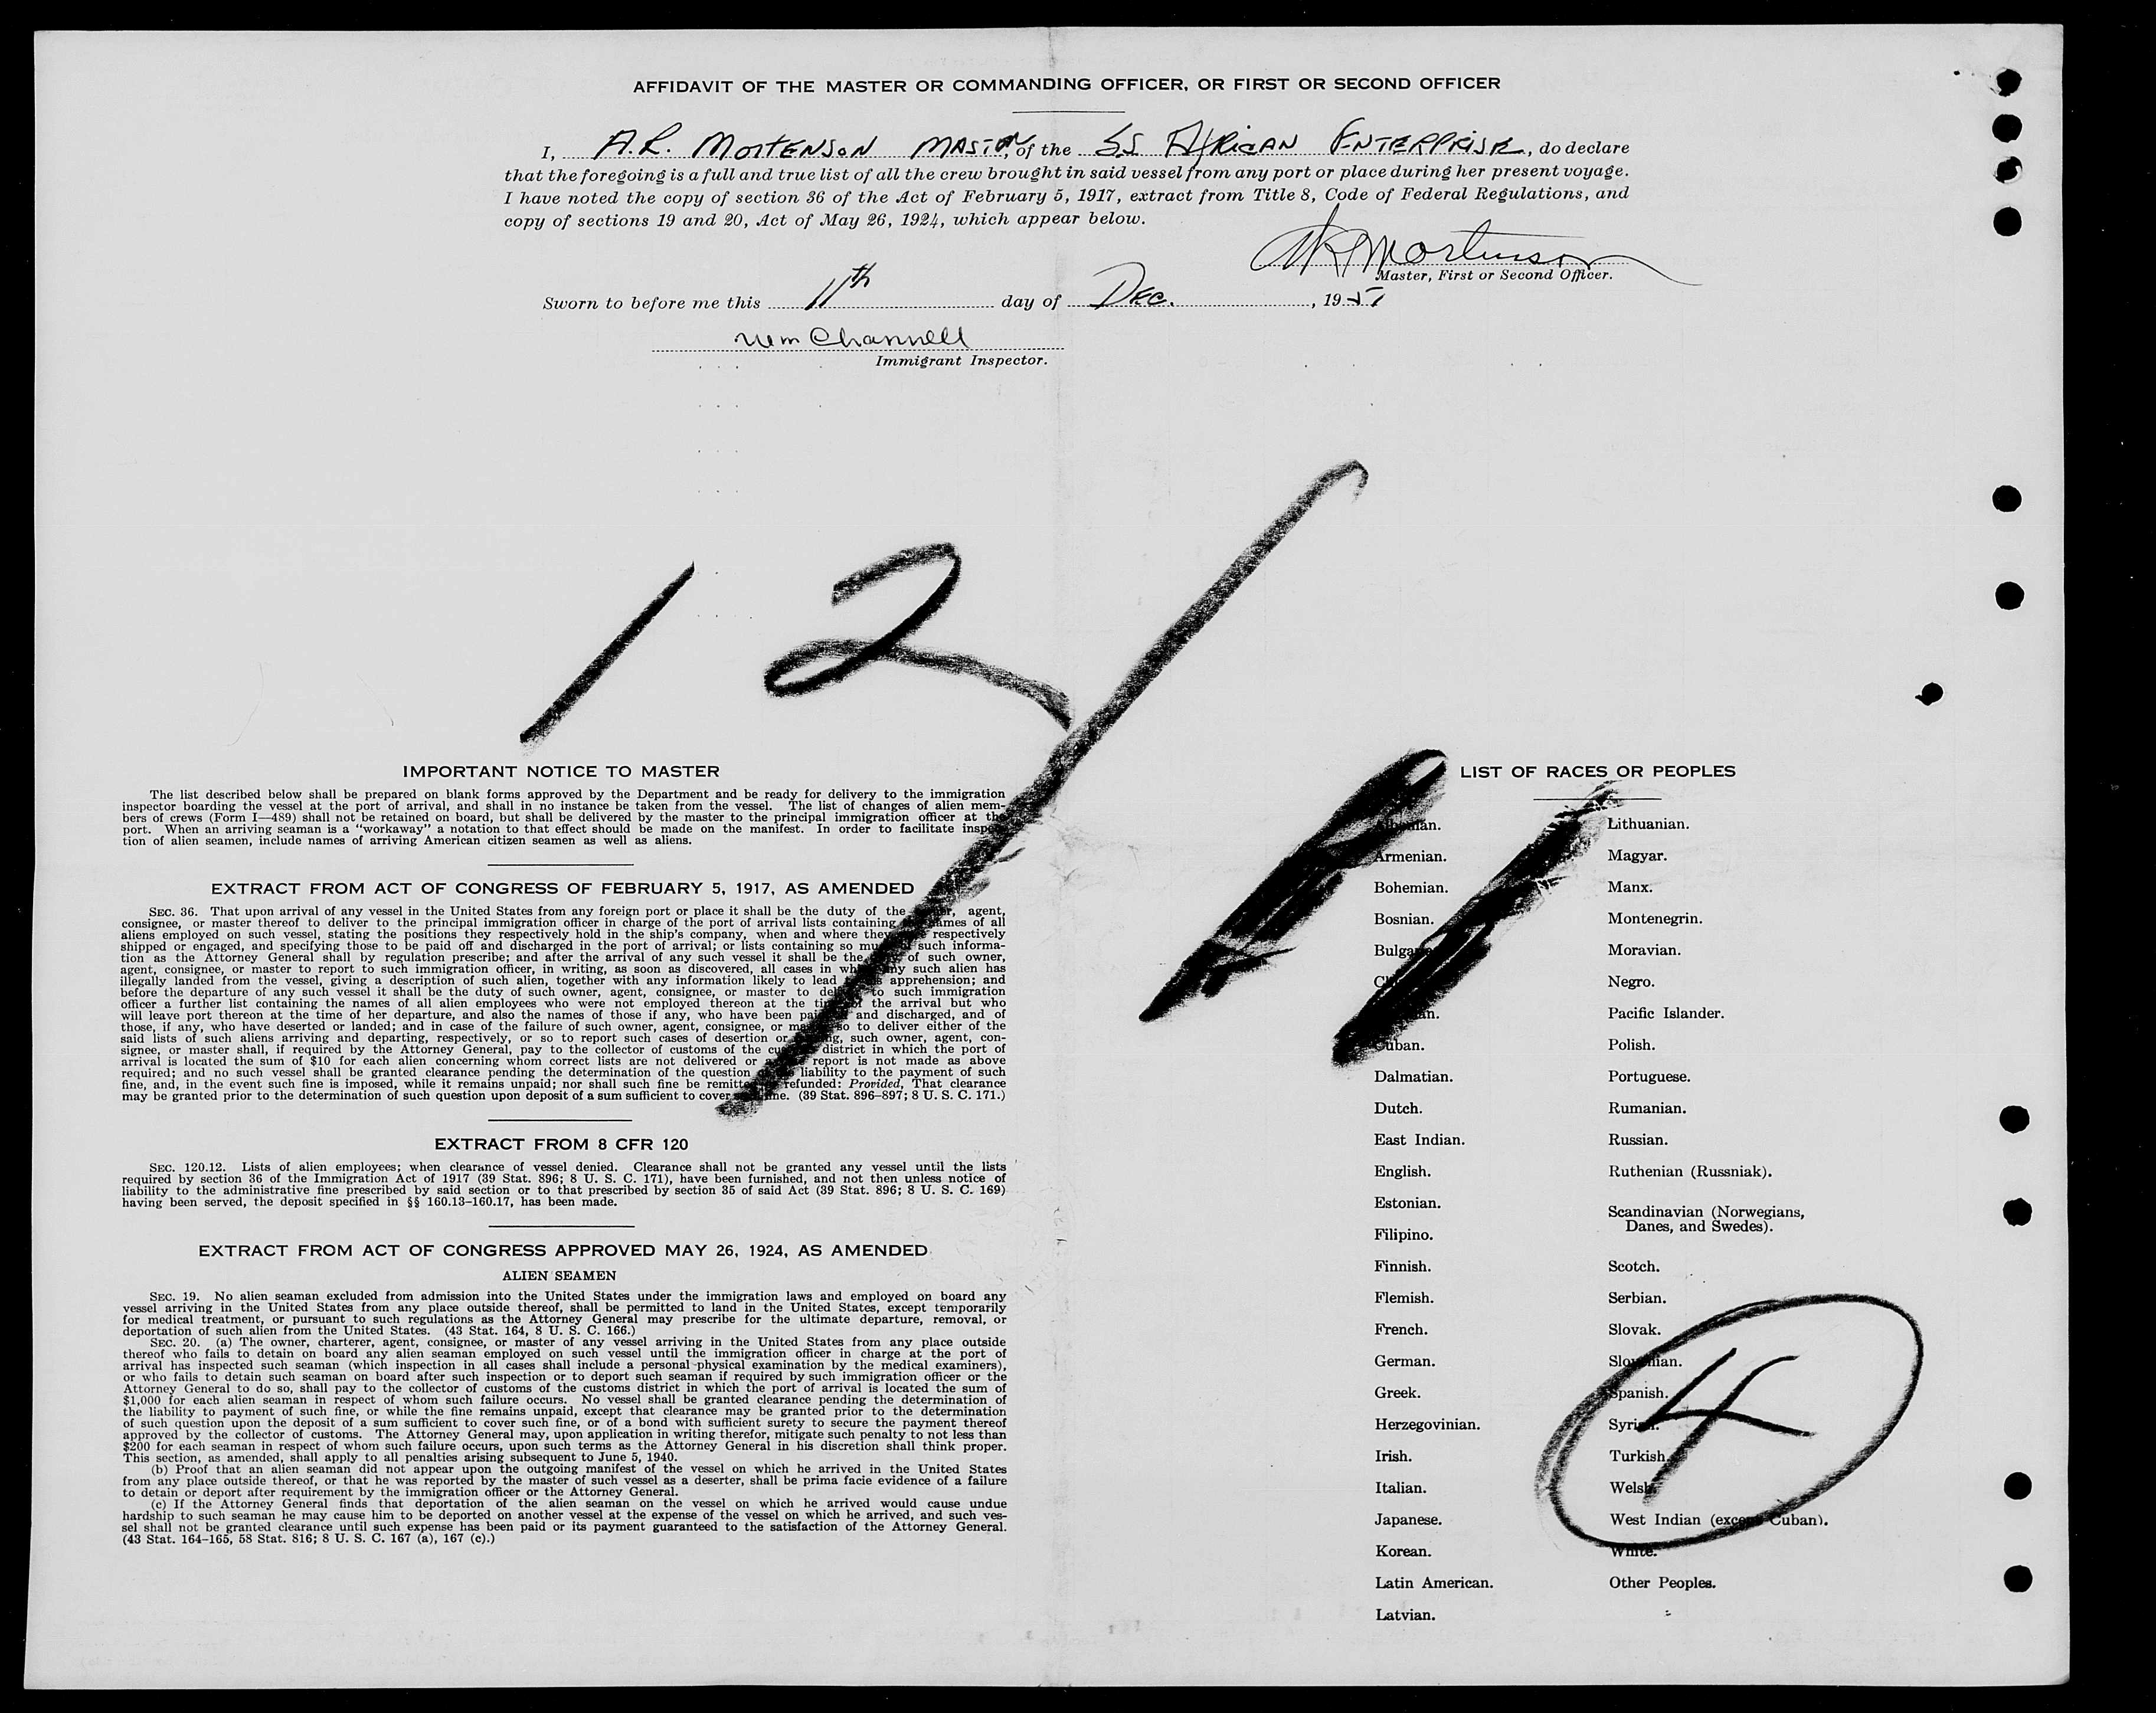 AFFIDAVIT OF THE MASTER OR COMMANDING OFFICER, OR FIRST OR SECOND OFFICER
I, A.R. MORTENSON MASTER, of the SS AFRICAN ENTERPRISE, do declare
that the foregoing is a full and true list of all the crew brought in said vessel from any port or place during her present voyage.
I have noted the copy of section 36 of the Act of February 5, 1917, extract from Title 8, Code of Federal Regulations, and
copy of sections 19 and 20, Act of May 26, 1924, which appear below.
AR Mortenson
Master, First or Second Officer.
Sworn to before me this 11th day of DEC., 1951
Wm Channell
Immigrant Inspector.
12/11
IMPORTANT NOTICE TO MASTER
The list described below shall be prepared on blank forms approved by the Department and be ready for delivery to the immigration
inspector boarding the vessel at the port of arrival, and shall in no instance be taken from the vessel. The list of changes of alien mem-
bers of crews (Form I—489) shall not be retained on board, but shall be delivered by the master to the principal immigration officer at the
port. When an arriving seaman is a "workaway" a notation to that effect should be made on the manifest. In order to facilitate inspec-
tion of alien seamen, include names of arriving American citizen seamen as well as aliens.
EXTRACT FROM ACT OF CONGRESS OF FEBRUARY 5, 1917, AS AMENDED
SEC. 36. That upon arrival of any vessel in the United States from any foreign port or place it shall be the duty of the agent,
consignee, or master thereof to deliver to the principal immigration officer in charge of the port of arrival lists containing names of all
aliens employed on such vessel, stating the positions they respectively hold in the ship's company, when and where they respectively
shipped or engaged, and specifying those to be paid off and discharged in the port of arrival; or lists containing so much such informa-
tion as the Attorney General shall by regulation prescribe; and after the arrival of any such vessel it shall be the of such owner,
agent, consignee, or master to report to such immigration officer, in writing, as soon as discovered, all cases in which any such alien has
illegally landed from the vessel, giving a description of such alien, together with any information likely to lead apprehension; and
before the departure of any such vessel it shall be the duty of such owner, agent, consignee, or master to deliver to such immigration
officer a further list containing the names of all alien employees who were not employed thereon at the time the arrival but who
will leave port thereon at the time of her departure, and also the names of those if any, who have been paid and discharged, and of
those, if any, who have deserted or landed; and in case of the failure of such owner, agent, consignee, or master so to deliver either of the
said lists of such aliens arriving and departing, respectively, or so to report such cases of desertion or landing, such owner, agent, con-
signee, or master shall, if required by the Attorney General, pay to the collector of customs of the customs district in which the port of
arrival is located the sum of $10 for each alien concerning whom correct lists are not delivered or a report is not made as above
required; and no such vessel shall be granted clearance pending the determination of the question liability to the payment of such
fine, and, in the event such fine is imposed, while it remains unpaid; nor shall such fine be remitted refunded: Provided, That clearance
may be granted prior to the determination of such question upon deposit of a sum sufficient to cover fine. (39 Stat. 896–897; 8 U. S. C. 171.)
EXTRACT FROM 8 CFR 120
SEC. 120.12. Lists of alien employees; when clearance of vessel denied. Clearance shall not be granted any vessel until the lists
required by section 36 of the Immigration Act of 1917 (39 Stat. 896; 8 U. S. C. 171), have been furnished, and not then unless notice of
liability to the administrative fine prescribed by said section or to that prescribed by section 35 of said Act (39 Stat. 896; 8 U. S. C. 169)
having been served, the deposit specified in §§ 160.13–160.17, has been made.
EXTRACT FROM ACT OF CONGRESS APPROVED MAY 26, 1924, AS AMENDED
ALIEN SEAMEN
SEC. 19. No alien seaman excluded from admission into the United States under the immigration laws and employed on board any
vessel arriving in the United States from any place outside thereof, shall be permitted to land in the United States, except temporarily
for medical treatment, or pursuant to such regulations as the Attorney General may prescribe for the ultimate departure, removal, or
deportation of such alien from the United States. (43 Stat. 164, 8 U. S. C. 166.)
SEC. 20. (a) The owner, charterer, agent, consignee, or master of any vessel arriving in the United States from any place outside
thereof who fails to detain on board any alien seaman employed on such vessel until the immigration officer in charge at the port of
arrival has inspected such seaman (which inspection in all cases shall include a personal physical examination by the medical examiners),
or who fails to detain such seaman on board after such inspection or to deport such seaman if required by such immigration officer or the
Attorney General to do so, shall pay to the collector of customs of the customs district in which the port of arrival is located the sum of
$1,000 for each alien seaman in respect of whom such failure occurs. No vessel shall be granted clearance pending the determination of
the liability to payment of such fine, or while the fine remains unpaid, except that clearance may be granted prior to the determination
of such question upon the deposit of a sum sufficient to cover such fine, or of a bond with sufficient surety to secure the payment thereof
approved by the collector of customs. The Attorney General may, upon application in writing therefor, mitigate such penalty to not less than
$200 for each seaman in respect of whom such failure occurs, upon such terms as the Attorney General in his discretion shall think proper.
This section, as amended, shall apply to all penalties arising subsequent to June 5, 1940.
(b) Proof that an alien seaman did not appear upon the outgoing manifest of the vessel on which he arrived in the United States
from any place outside thereof, or that he was reported by the master of such vessel as a deserter, shall be prima facie evidence of a failure
to detain or deport after requirement by the immigration officer or the Attorney General.
(c) If the Attorney General finds that deportation of the alien seaman on the vessel on which he arrived would cause undue
hardship to such seaman he may cause him to be deported on another vessel at the expense of the vessel on which he arrived, and such ves-
sel shall not be granted clearance until such expense has been paid or its payment guaranteed to the satisfaction of the Attorney General.
(43 Stat. 164–165, 58 Stat. 816; 8 U. S. C. 167 (a), 167 (c).)
LIST OF RACES OR PEOPLES
Armenian.
Bohemian.
Bosnian.
Cuban.
Dalmatian.
Dutch.
East Indian.
English.
Estonian.
Filipino.
Finnish.
Flemish.
French.
German.
Greek.
Herzegovinian.
Irish.
Italian.
Japanese.
Korean.
Latin American.
Latvian.
Lithuanian.
Magyar.
Manx.
Montenegrin.
Moravian.
Negro.
Pacific Islander.
Polish.
Portuguese.
Rumanian.
Russian.
Ruthenian (Russniak).
Scandinavian (Norwegians,
Danes, and Swedes).
Scotch.
Serbian.
Slovak.
Slovenian.
Spanish.
Syrian.
Turkish.
Welsh.
West Indian (except Cuban).
White.
Other Peoples.
4